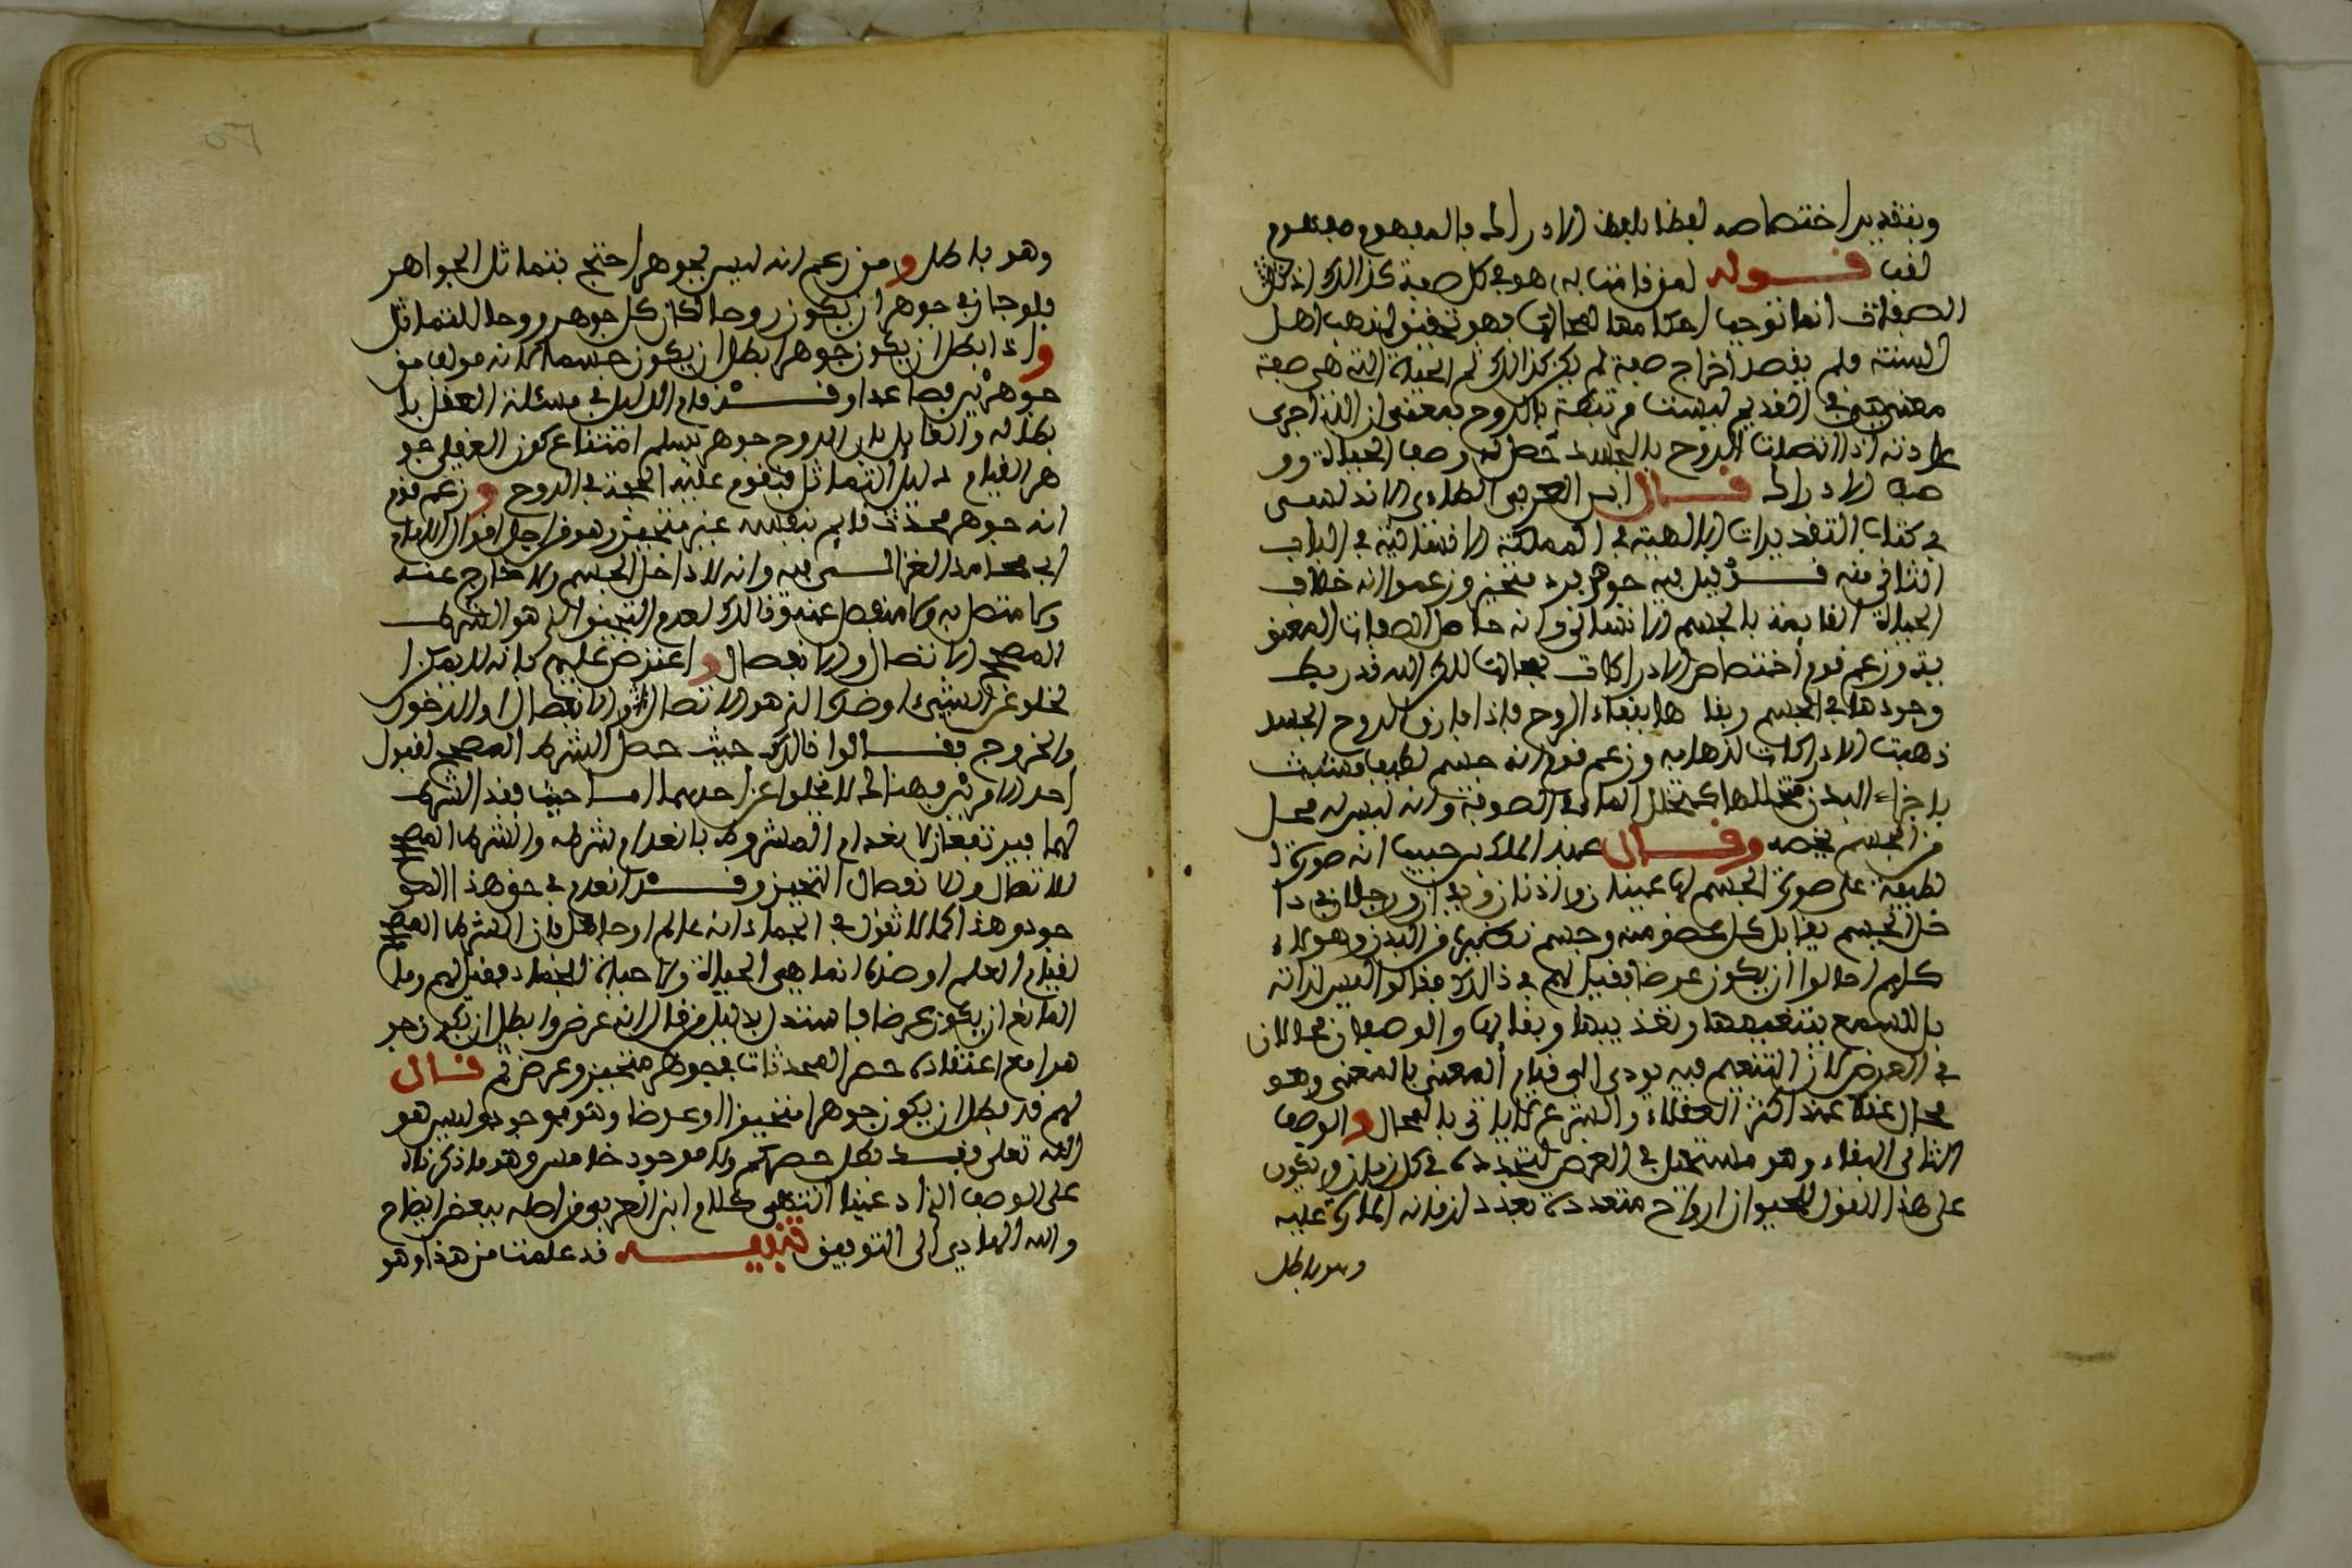 وبتقدير اختصاصه لفظا بلفظ الادراك فالمفهوم مفهوم
لقب قوله لمن قامت به هو في كل صفة كذالك اذ كل
الصفات انما توجب احكامها لمحالها فهو تحقيق لمذهب اهل
السنة ولم يقصد اخراج صفة لم يكن كذالك ثم الحياة التي هي صفة
معنى في القديم ليست مرتبطة بالروح بمعنى ان الله اجرى
عادته اذا اتصلت الروح بالجسد حصل له وصف الحياة وو
صف الادراك قال ابن العربي الطاءي الاندلسي
في كتاب التقديرات الالهية في المملكة الانسانية في الباب
الثاني منه قد قيل فيه جوهر فرد متحيز وزعموا انه خلاف
الحياة القايمة بالجسم الانساني وانه حامل الصفات المعنو
ية وزعم قوم اختصاص الادراكات بمحالها لاكن الله قد ربط
وجودها في الجسم وبقا ها ببقاء الروح فاذا فارق الروح الجسد
ذهبت الادراكات لذهابه وزعم قوم انه جسم لطيف متشبث
باجزاء البدن متخللها كتخلل الماء في الصوفة وانه ليس له محل
من الجسم يخصه وقال عبد الملك بن حبيب انه صورة
لطيفة على صورة الجسم لها عينان واذنان ويدان ورجلان في دا
خل الجسم يقابل كل عضو منه وجسم نظيره من البدن وهولاء
كلهم احالوا ان يكون عرضا فقيل لهم في ذالك فقالوا ليس لذاته
بل للسمع بتنعيمها وتعذيبها وبقايها والوصفان محالان
في العرض لان التنعيم فيه يودي الى قيام المعنى بالمعنى وهو
محال عقلا عند اكثر العقلاء والشرع لا ياتي بالمحال والوصف
الثاني البقاء وهو مستحيل في العرض لتجدده في كل زمان ويكون
على هذا القول للحيوان ارواح متعددة بعدد ازمانه المارة عليه
وهو باطل
وهو باطل ومن زعم انه ليس بجوهر احتج بتماثل الجواهر
فلو جاز في جوهر ان يكون روحا لكان كل جوهر روحا للتماثل
واذا بطل ان يكون جوهرا بطل ان يكون جسما لانه مولف من
جوهرين فصاعدا وقد قام الدليل في مسئلة العقل با
بطاله والقايل بان الروح جوهر يسلم امتناع كون العقل جو
هر القيام دليل التماثل فتقوم عليه الحجة في الروح وزعم قوم
انه جوهر محدث قايم بنفسه غير متحيز وهو من اجل اقوال الامام
ابي حامد الغزالي فيه وانه لا داخل الجسم ولا خارج عنه
ولا متصل به ولا منفصل عنه وذالك لعدم التحيز الذي هو الشرط
المصحح الاتصال والانفصال واعترض عليهم بانه لا يمكن ا
لخلو عن الشيء او ضده الذي هو الاتصال او الانفصال او الدخول
والخروج فقالوا ذالك حيث حصل الشرط المصحح لقبول
احد الامرين فهنالك لا يخلوا عن احدهما اما حيث فقد الشرط
لهما فيرتفعان لانعدام المشروط بانعدام شرطه والشرط المصحح
للاتصال والانفصال التحيز وقد انعدم في حق هذا المو
جود وهذا كما لا تقول في الجماد انه عالم او جاهل فان الشرط المصحح
لقيام العلم او ضده انما هي الحياة ولا حياة للجماد فقيل لهم وما
المانع ان يكون عرضا فاستدل بدليل من قال انه عرض وابطل ان يكون جو
هرا مع اعتقاده حصر المحدثات في جوهر متحيز وعرض ثم قال
لهم قد بطل ان يكون جوهرا متحيزا او عرضا وهو موجود وليس هو
الله تعلى فقد بطل حصركم ولا موجود خامس وهو ما ذكرناه
على الوصف الذي ادعينا انتهى كلام ابن العربي من اصله ببعض ايضاح
والله الهادي الى التوفيق تنبيه قد علمت من هذا وهو